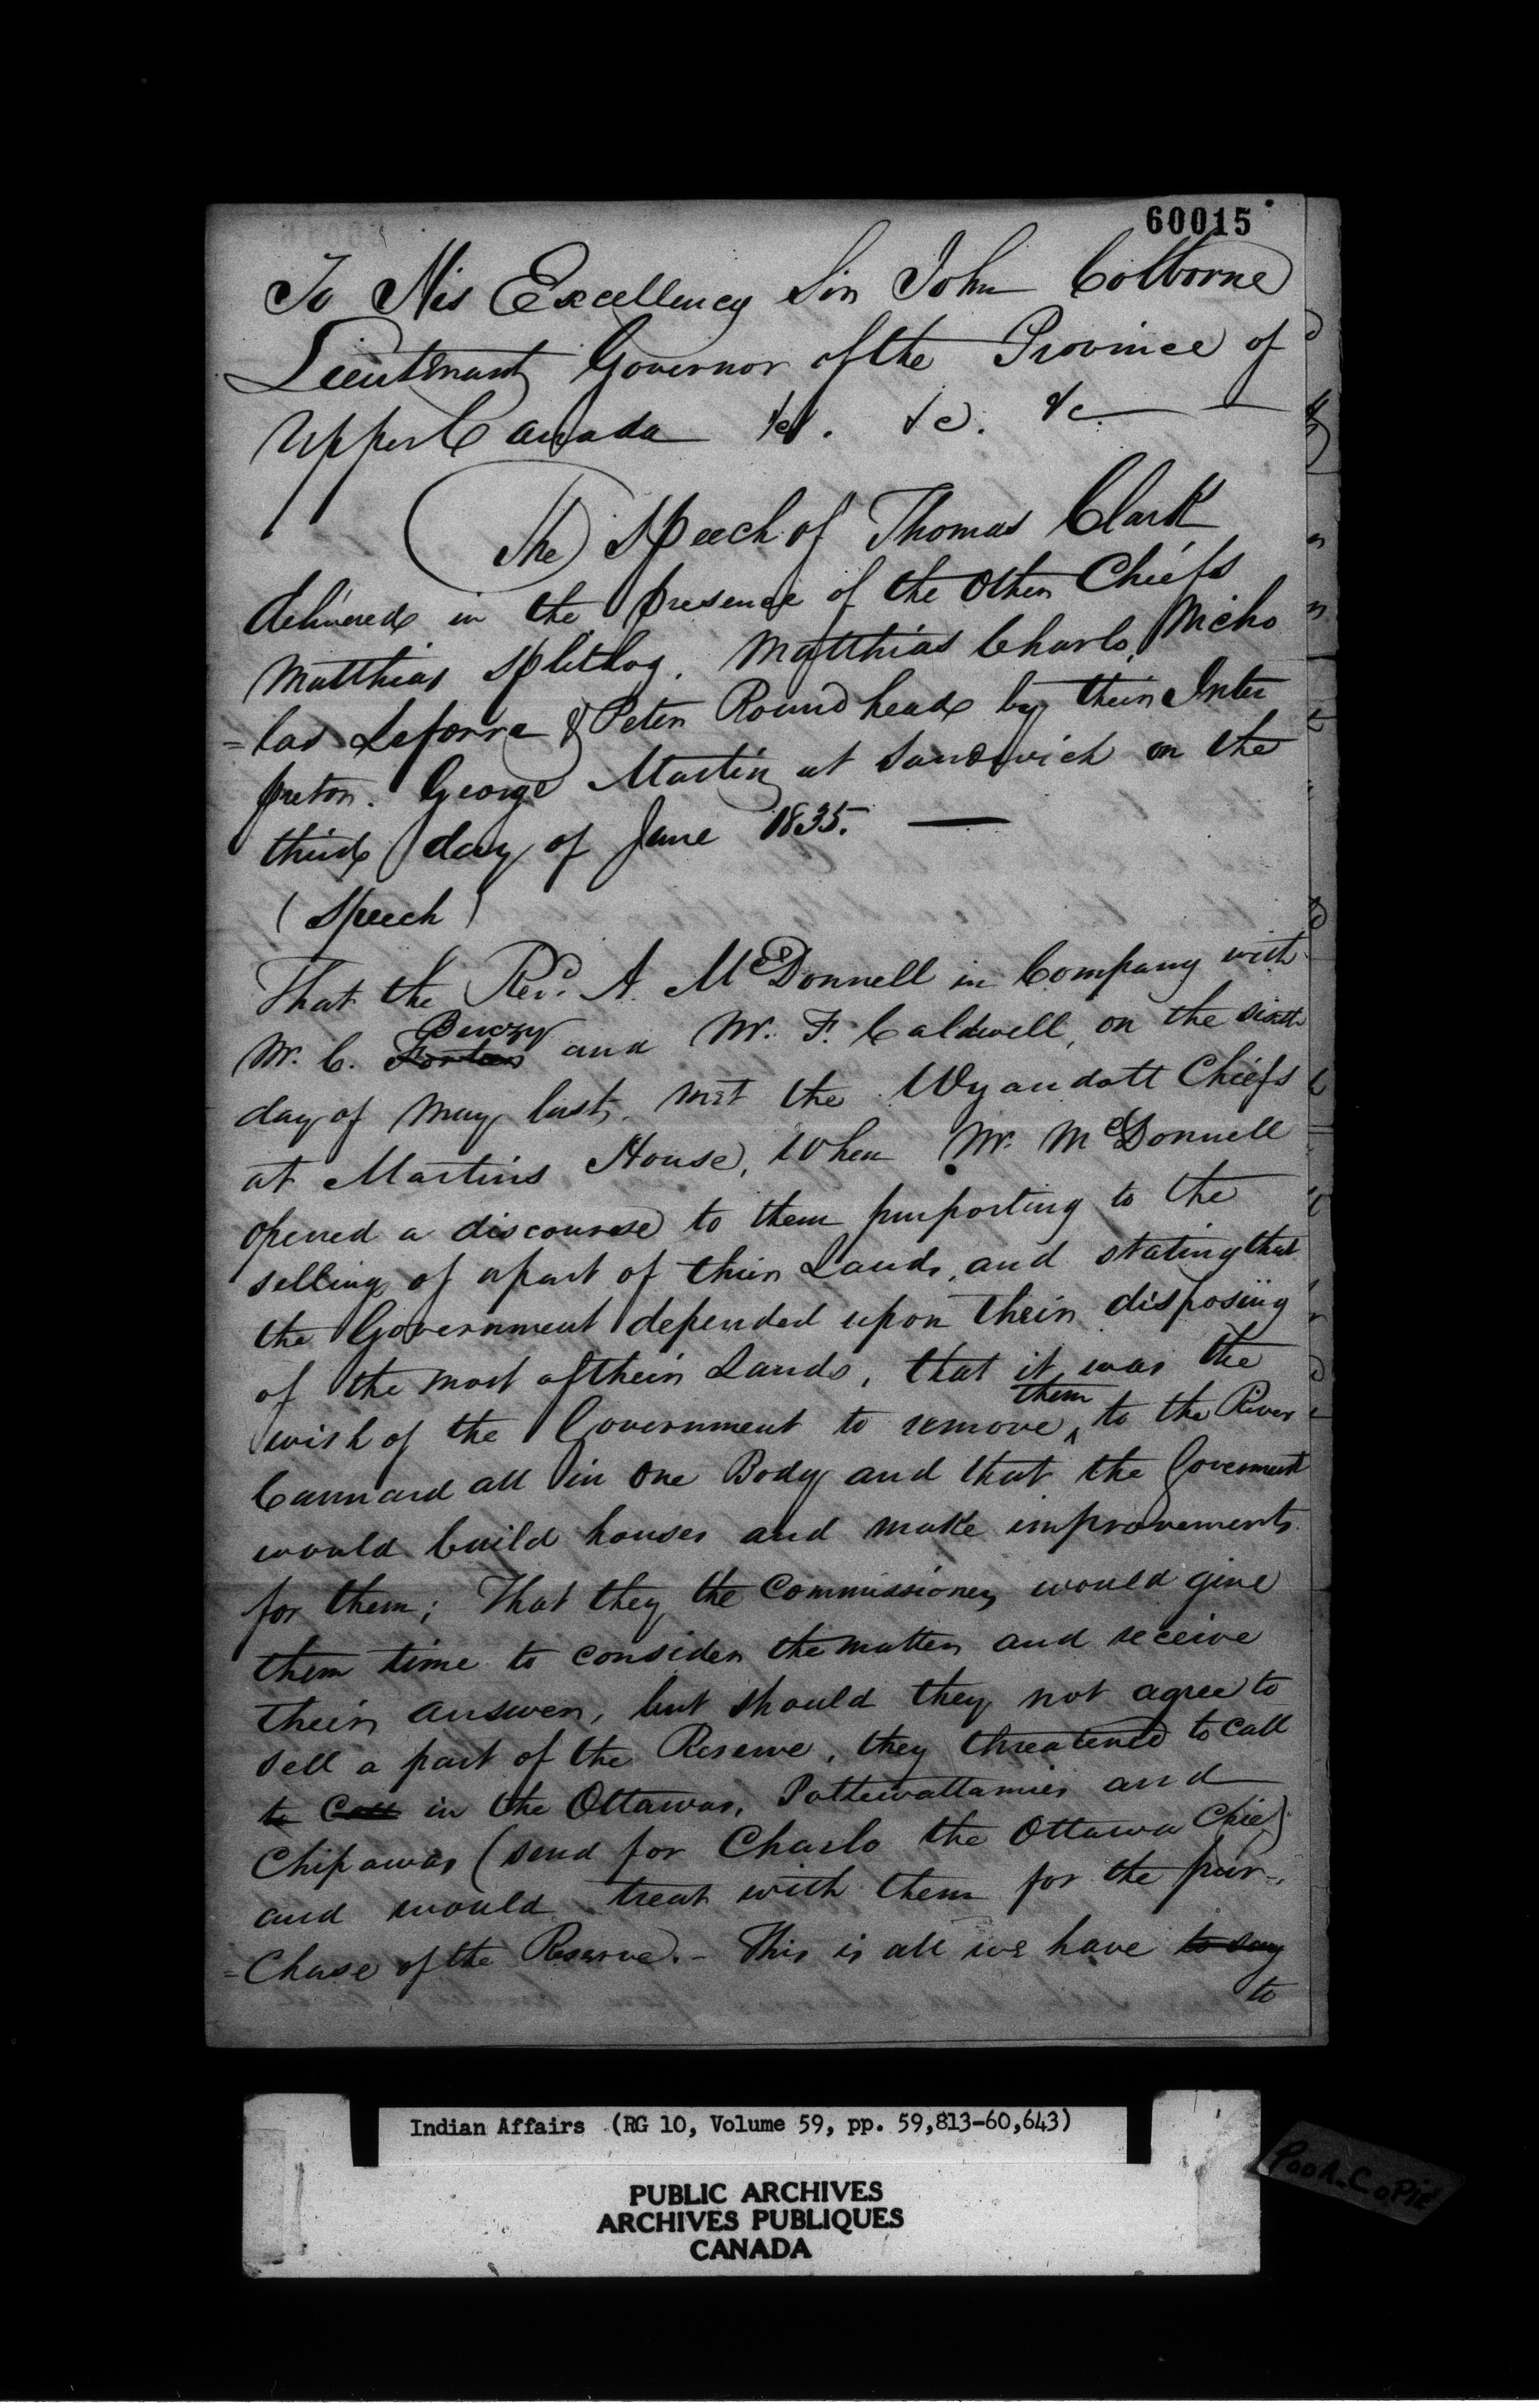 60015
To His Excellency Sir John Colborne
Lieutenant Governor of the Province of
Upper Canada &c. &c. &c.
The Speech of Thomas Clark
delivered in the presence of the Other Chiefs
Matthias Splitlog. Matthias Charlo, Nicho
=las Laforre & Peter Roundhead by their Inter
preter. George Martin at Sandwich on the
third day of June 1835. —
(Speech)
That the Revd. A. McDonnell in Company with
Mr. C. Berczy and Mr. F. Caldwell, on the sixth
day of May last, met the Wyandott Chiefs
at Martins House, When Mr. McDonnell
opened a discourse to them purporting to the
selling of apart of their Lands, and stating that
the Government depended upon their disposing
of the most of their Lands, that it was the
wish of the Government to remove them to the River
Cannard all in one Body and that the Government
would build houses and make improvements
for them; That they the Commissioners would give
them time to consider the matter and receive
their answer, but should they not agree to
sell a part of the Reserve, they threatened to call
to Call in the Ottawas, Pottewattamies and
Chipawas (send for Charlo the Ottawa Chief)
and would treat with them for the pur-
=Chase of the Reserve. - This is all we have to say
to
Indian Affairs (RG 10, Volume 59, pp. 59,813-60,643)
PUBLIC ARCHIVES
ARCHIVES PUBLIQUES
CANADA
POOR COPIE